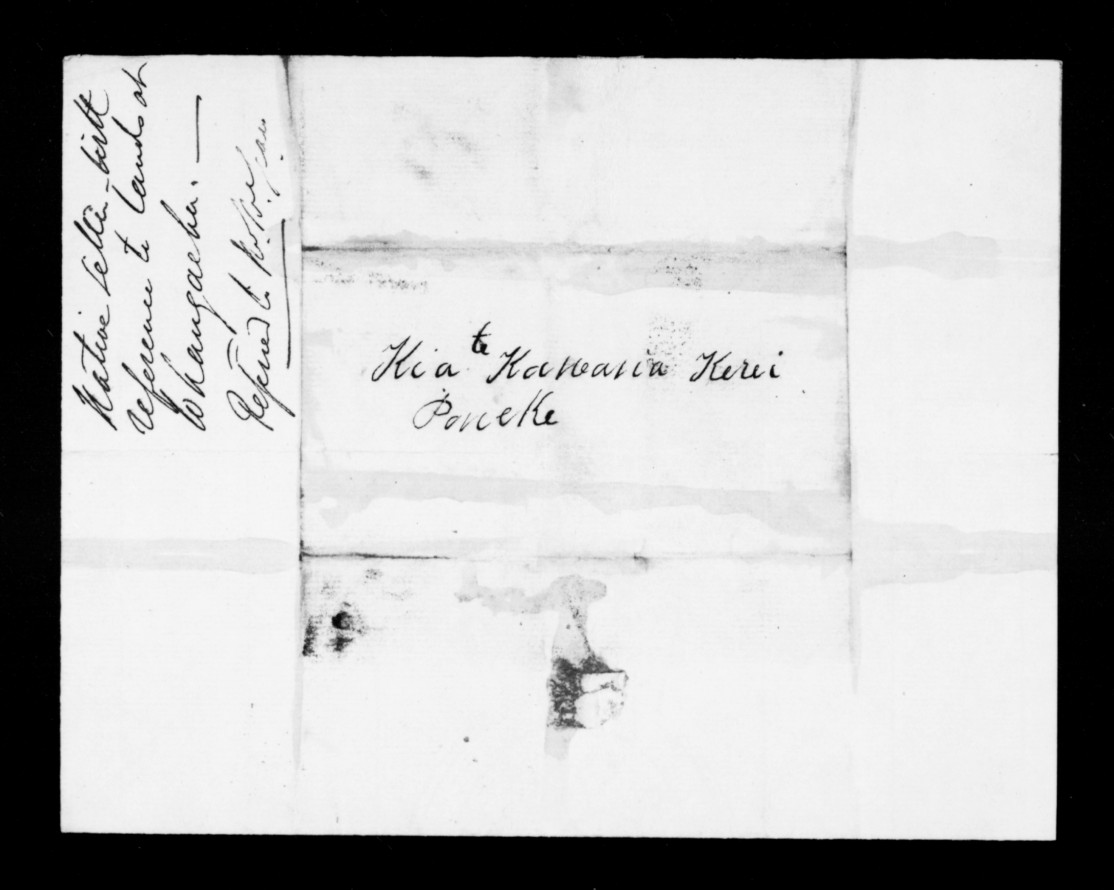 Native letter with
reference to lands at
Whangaehu. —
Referred to
Kia te Kawana Kerei
Poneke